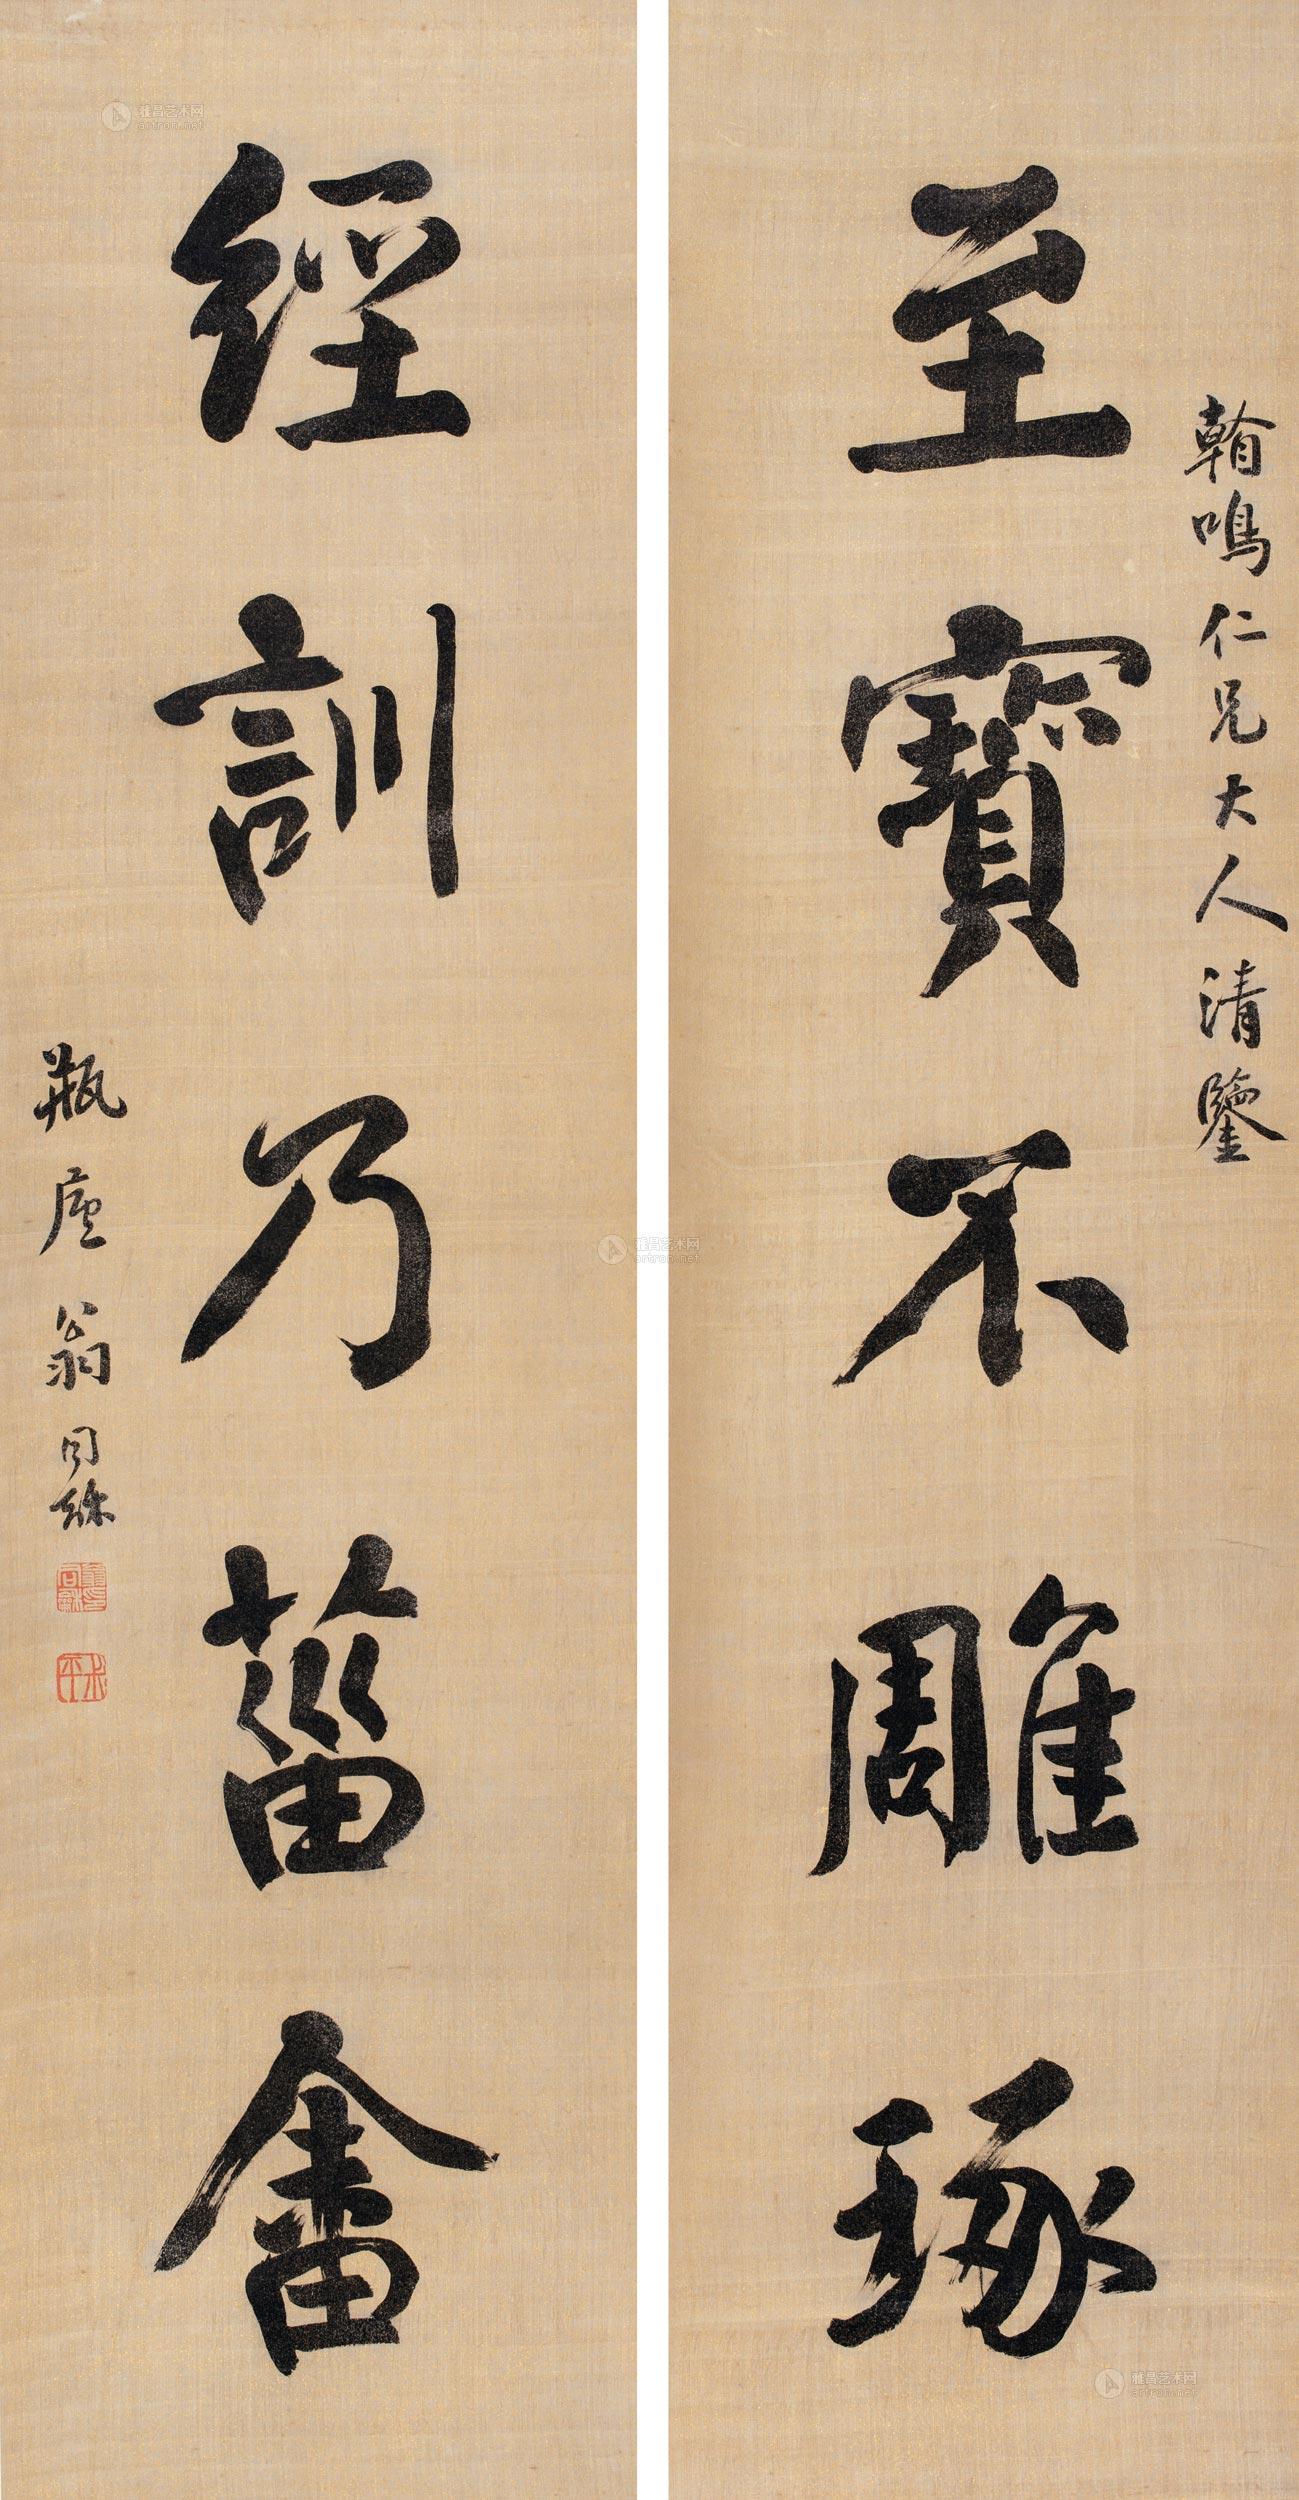 至寶不雕琢
翰鳴仁兄大人清鑒
經訓乃菑畬
瓶廬翁同龢
雅昌艺术网
artron.net
雅昌艺术网
artron.net
雅昌艺术网
artron.net